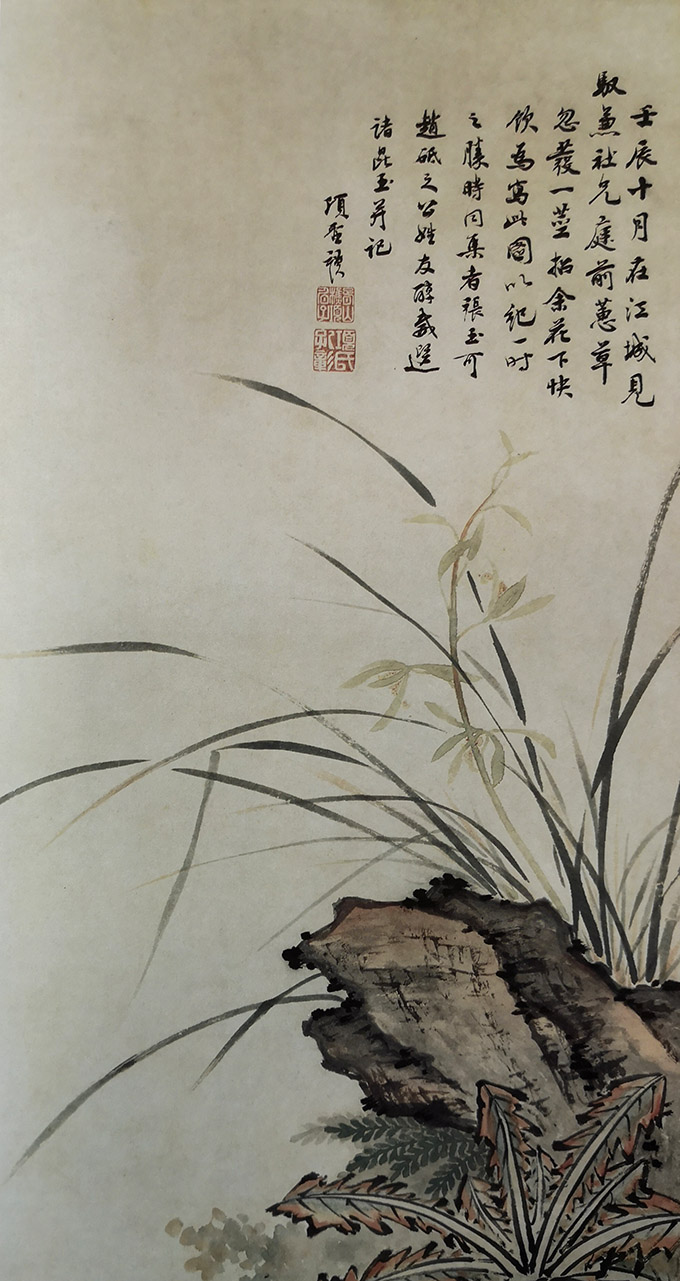 壬辰十月在江城見
馭蒼社兄庭前蕙草
忽發一莖招余花下快
飲為寫此圖以紀一時
之勝時同集者張玉可
趙砥之公姓友醉
諸昆玉并記
項聖謨
項氏孔彰